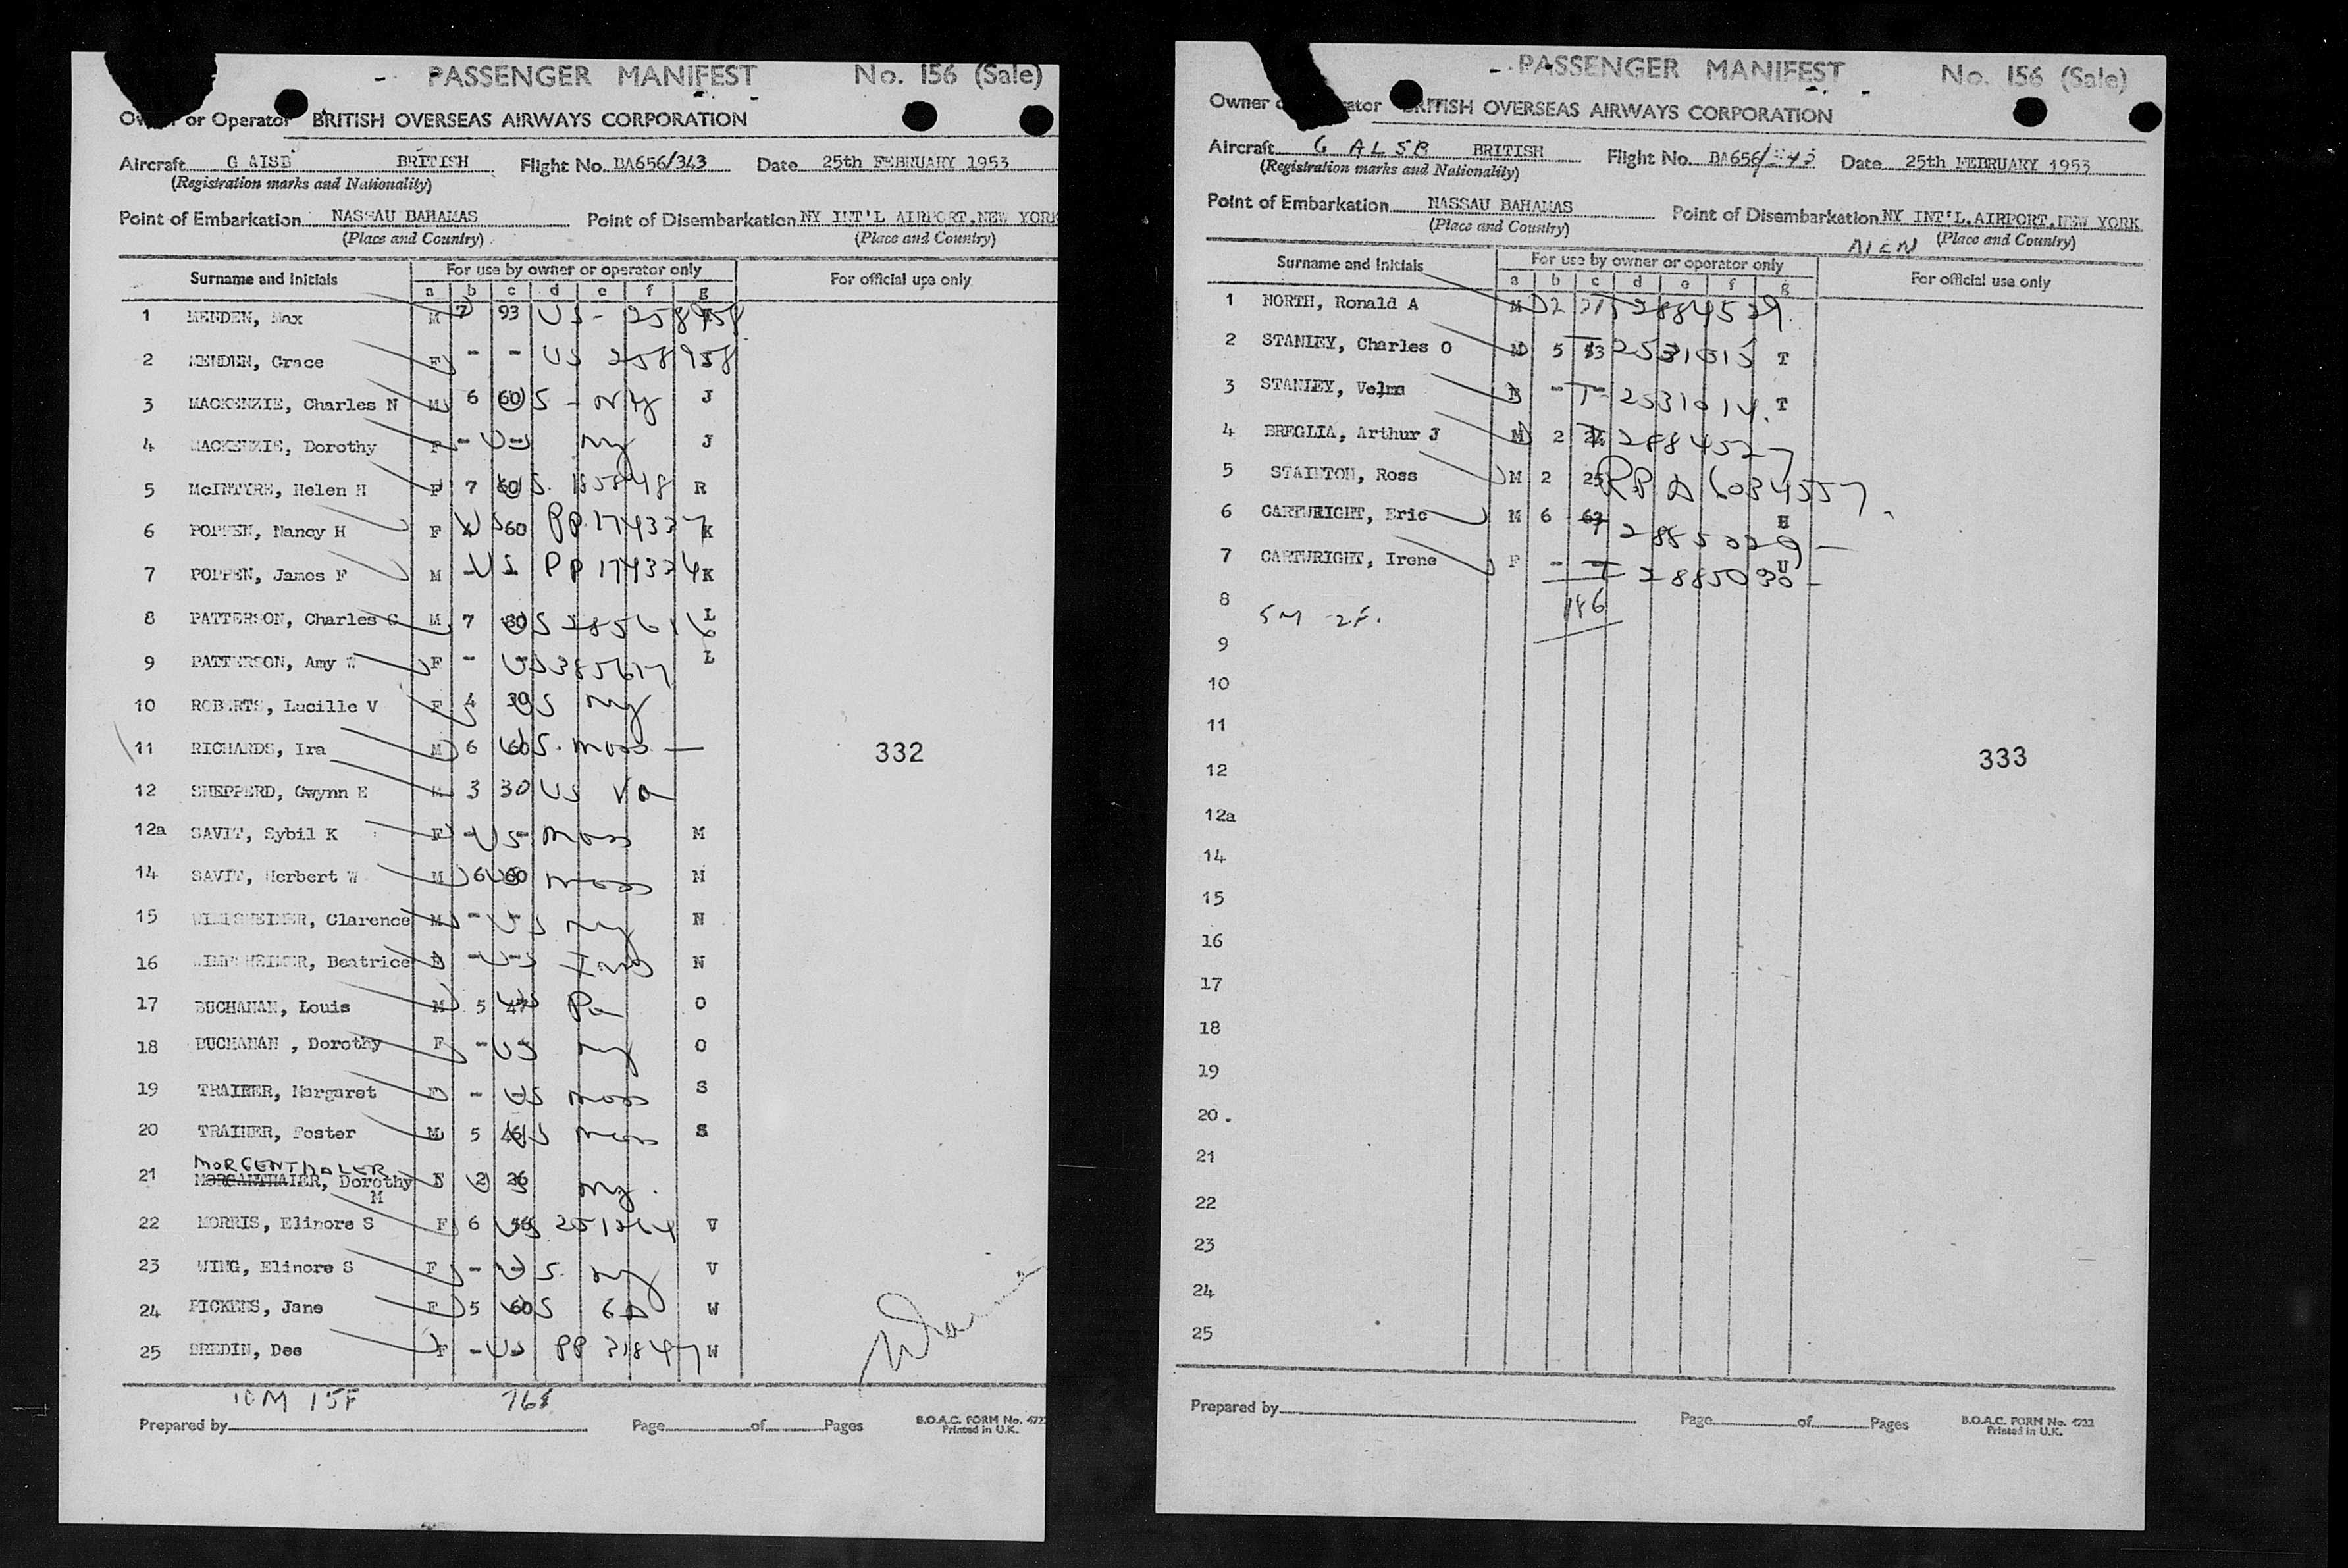 PASSENGER MANIFEST No. 156 (Sale)
or Operator BRITISH OVERSEAS AIRWAYS CORPORATION
Aircraft BRITISH Flight No. BA656/343 Date 25th FEBRUARY 1953
(Registration marks and Nationality)
Point of Embarkation NASSAU BAHAMAS Point of Disembarkation NY INT'L AIRPORT, NEW YORK
(Place and Country) (Place and Country)
Surname and Initials For use by owner or operator only For official use only
a b c d e f g
1 Max M 7 93 US -
2 Grace F - - US 258958
3 MACKENZIE, Charles N M 6 60 US - NY J
4 MACKENZIE, Dorothy F - - US NY J
5 McINTYRE, Helen H F 7 60 US R
6 POPPEN, Nancy H F US 60 PP 174337 K
7 POPPEN, James F M - US - PP 174334 K
8 PATTERSON, Charles G M 7 US L
9 PATTERSON, Amy W F - - US 385617 L
10 ROBERTS, Lucille V F 4 30 US NY
11 RICHARDS, Ira M 6 60 US. mass —
332
12 SHEPPERD, Gwynn E M 3 30 US Va
12a SAVIT, Sybil K F - US - mass M
14 SAVIT, Herbert W M 6 US 60 mass M
15 Clarence M - - US NY N
16 Beatrice F - - US N
17 BUCHANAN, Louis M 5 47 US Pa O
18 BUCHANAN , Dorothy F - - US NY O
19 Margaret F - - US mass S
20 Foster M 5 US mass S
MORGENTHALER
21 MORGANTHALER, Dorothy F 2 26 US NY.
M
22 MORRIS, Elinore S F 6 US 251264 V
23 WING, Elinore S F - - US. NY V
24 PICKENS, Jane F 5 60 US GA W
25 BREDIN, Dee F - US - PP 31847 W
10M 15F 768
Prepared by Page of Pages B.O.A.C. FORM No. 4722
Printed in U.K.
PASSENGER MANIFEST No. 156 (Sale)
Owner BRITISH OVERSEAS AIRWAYS CORPORATION
Aircraft G ALSB BRITISH Flight No. BA656/343 Date 25th FEBRUARY 1953
(Registration marks and Nationality)
Point of Embarkation NASSAU BAHAMAS Point of Disembarkation NY INT'L.AIRPORT.NEW YORK
(Place and Country) (Place and Country)
Surname and Initials For use by owner or operator only For official use only
a b c d e f g
1 NORTH, Ronald A M 2 2884529
2 STANLEY, Charles O M 5 53 2531015 T
3 STANLEY, Velma F - - 2531014 T
4 BREGLIA, Arthur J M 2 2884527
5 STAINTON, Ross M 2 25 A6034557
6 CARTWRIGHT, Eric M 6 2885029 —
7 CARTWRIGHT, Irene F - - 2885030 - U
8 5M 2F. 186
9
10
11
12
333
12a
14
15
16
17
18
19
20
21
22
23
24
25
Prepared by Page of Pages B.O.A.C. FORM No. 4722
Printed in U.K.